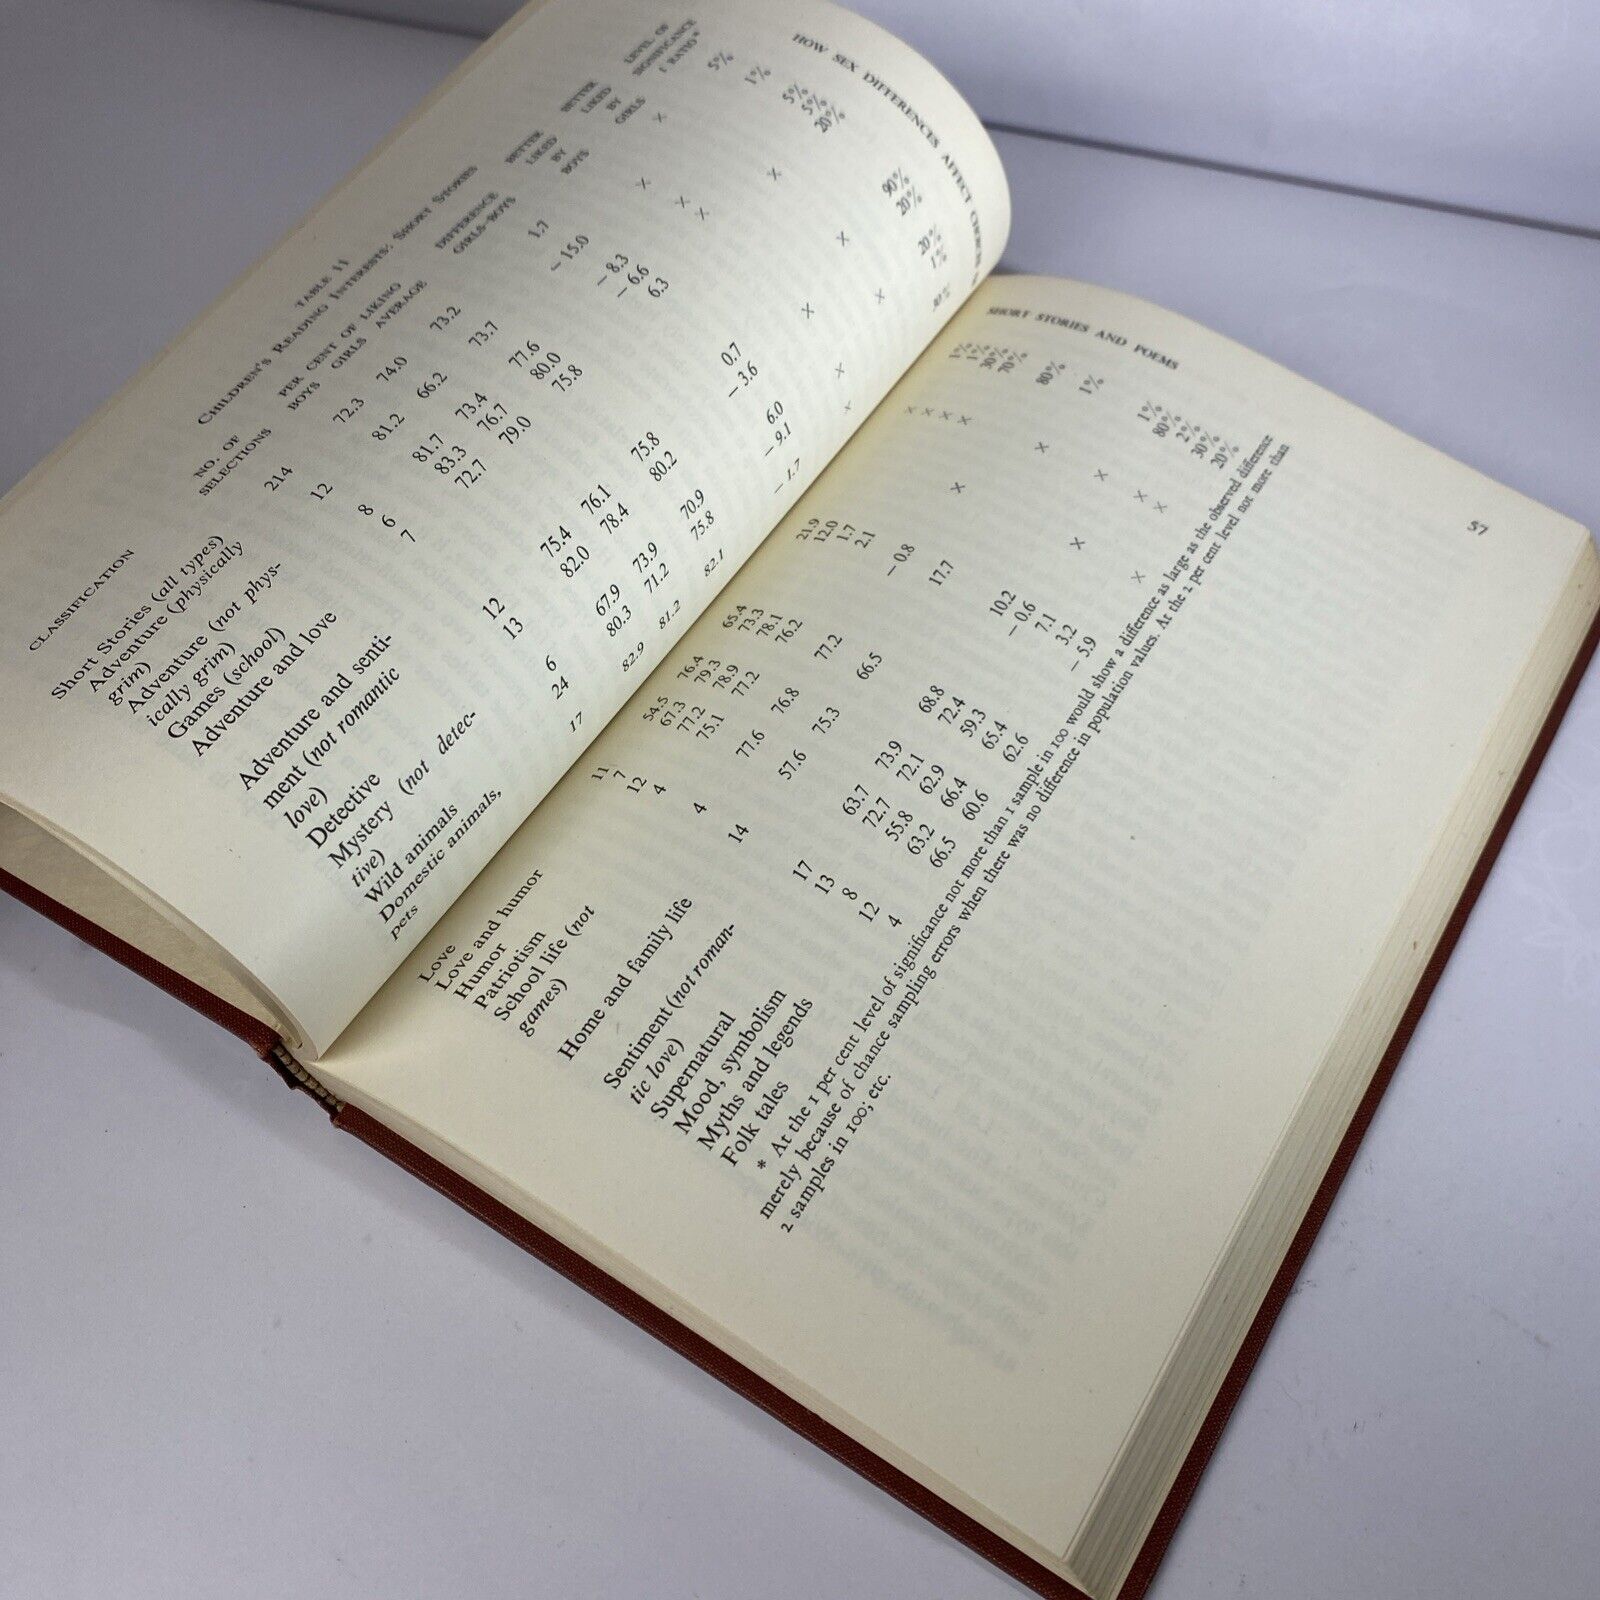 HOW SEX DIFFERENCES AFFECT CHOICE
TABLE 11
CHILDREN'S READING INTERESTS: SHORT STORIES
CLASSIFICATION NO. OF SELECTIONS PER CENT OF LIKING BOYS GIRLS AVERAGE DIFFERENCE GIRLS-BOYS BETTER LIKED BY BOYS BETTER LIKED BY GIRLS LEVEL OF SIGNIFICANCE t RATIO*
Short Stories (all types) 214 72.3 74.0 73.2 1.7 x 5%
Adventure (physically
grim) 12 81.2 66.2 73.7 – 15.0 x 1%
Adventure (not phys-
ically grim) 8 81.7 73.4 77.6 – 8.3 x 5%
Games (school) 6 83.3 76.7 80.0 – 6.6 x 5%
Adventure and love 7 72.7 79.0 75.8 6.3 x 20%
Adventure and senti-
ment (not romantic
love) 12 75.4 76.1 75.8 0.7 x 90%
Detective 13 82.0 78.4 80.2 – 3.6 x 20%
Mystery (not detec-
tive) 6 67.9 73.9 70.9 6.0 x 20%
Wild animals 24 80.3 71.2 75.8 – 9.1 x 1%
Domestic animals,
pets 17 82.9 81.2 82.1 – 1.7 x
SHORT STORIES AND POEMS 57
Love 11 54.5 76.4 65.4 21.9 x 1%
Love and humor 7 67.3 79.3 73.3 12.0 x 1%
Humor 12 77.2 78.9 78.1 1.7 x 30%
Patriotism 4 75.1 77.2 76.2 2.1 x 70%
School life (not
games) 4 77.6 76.8 77.2 – 0.8 x 80%
Home and family life 14 57.6 75.3 66.5 17.7 x 1%
Sentiment (not roman-
tic love) 17 63.7 73.9 68.8 10.2 x 1%
Supernatural 13 72.7 72.1 72.4 – 0.6 x 80%
Mood, symbolism 8 55.8 62.9 59.3 7.1 x 2%
Myths and legends 12 63.2 66.4 65.4 3.2 x 30%
Folk tales 4 66.5 60.6 62.6 – 5.9 x 20%
* At the 1 per cent level of significance not more than 1 sample in 100 would show a difference as large as the observed difference
merely because of chance sampling errors when there was no difference in population values. At the 2 per cent level not more than
2 samples in 100; etc.